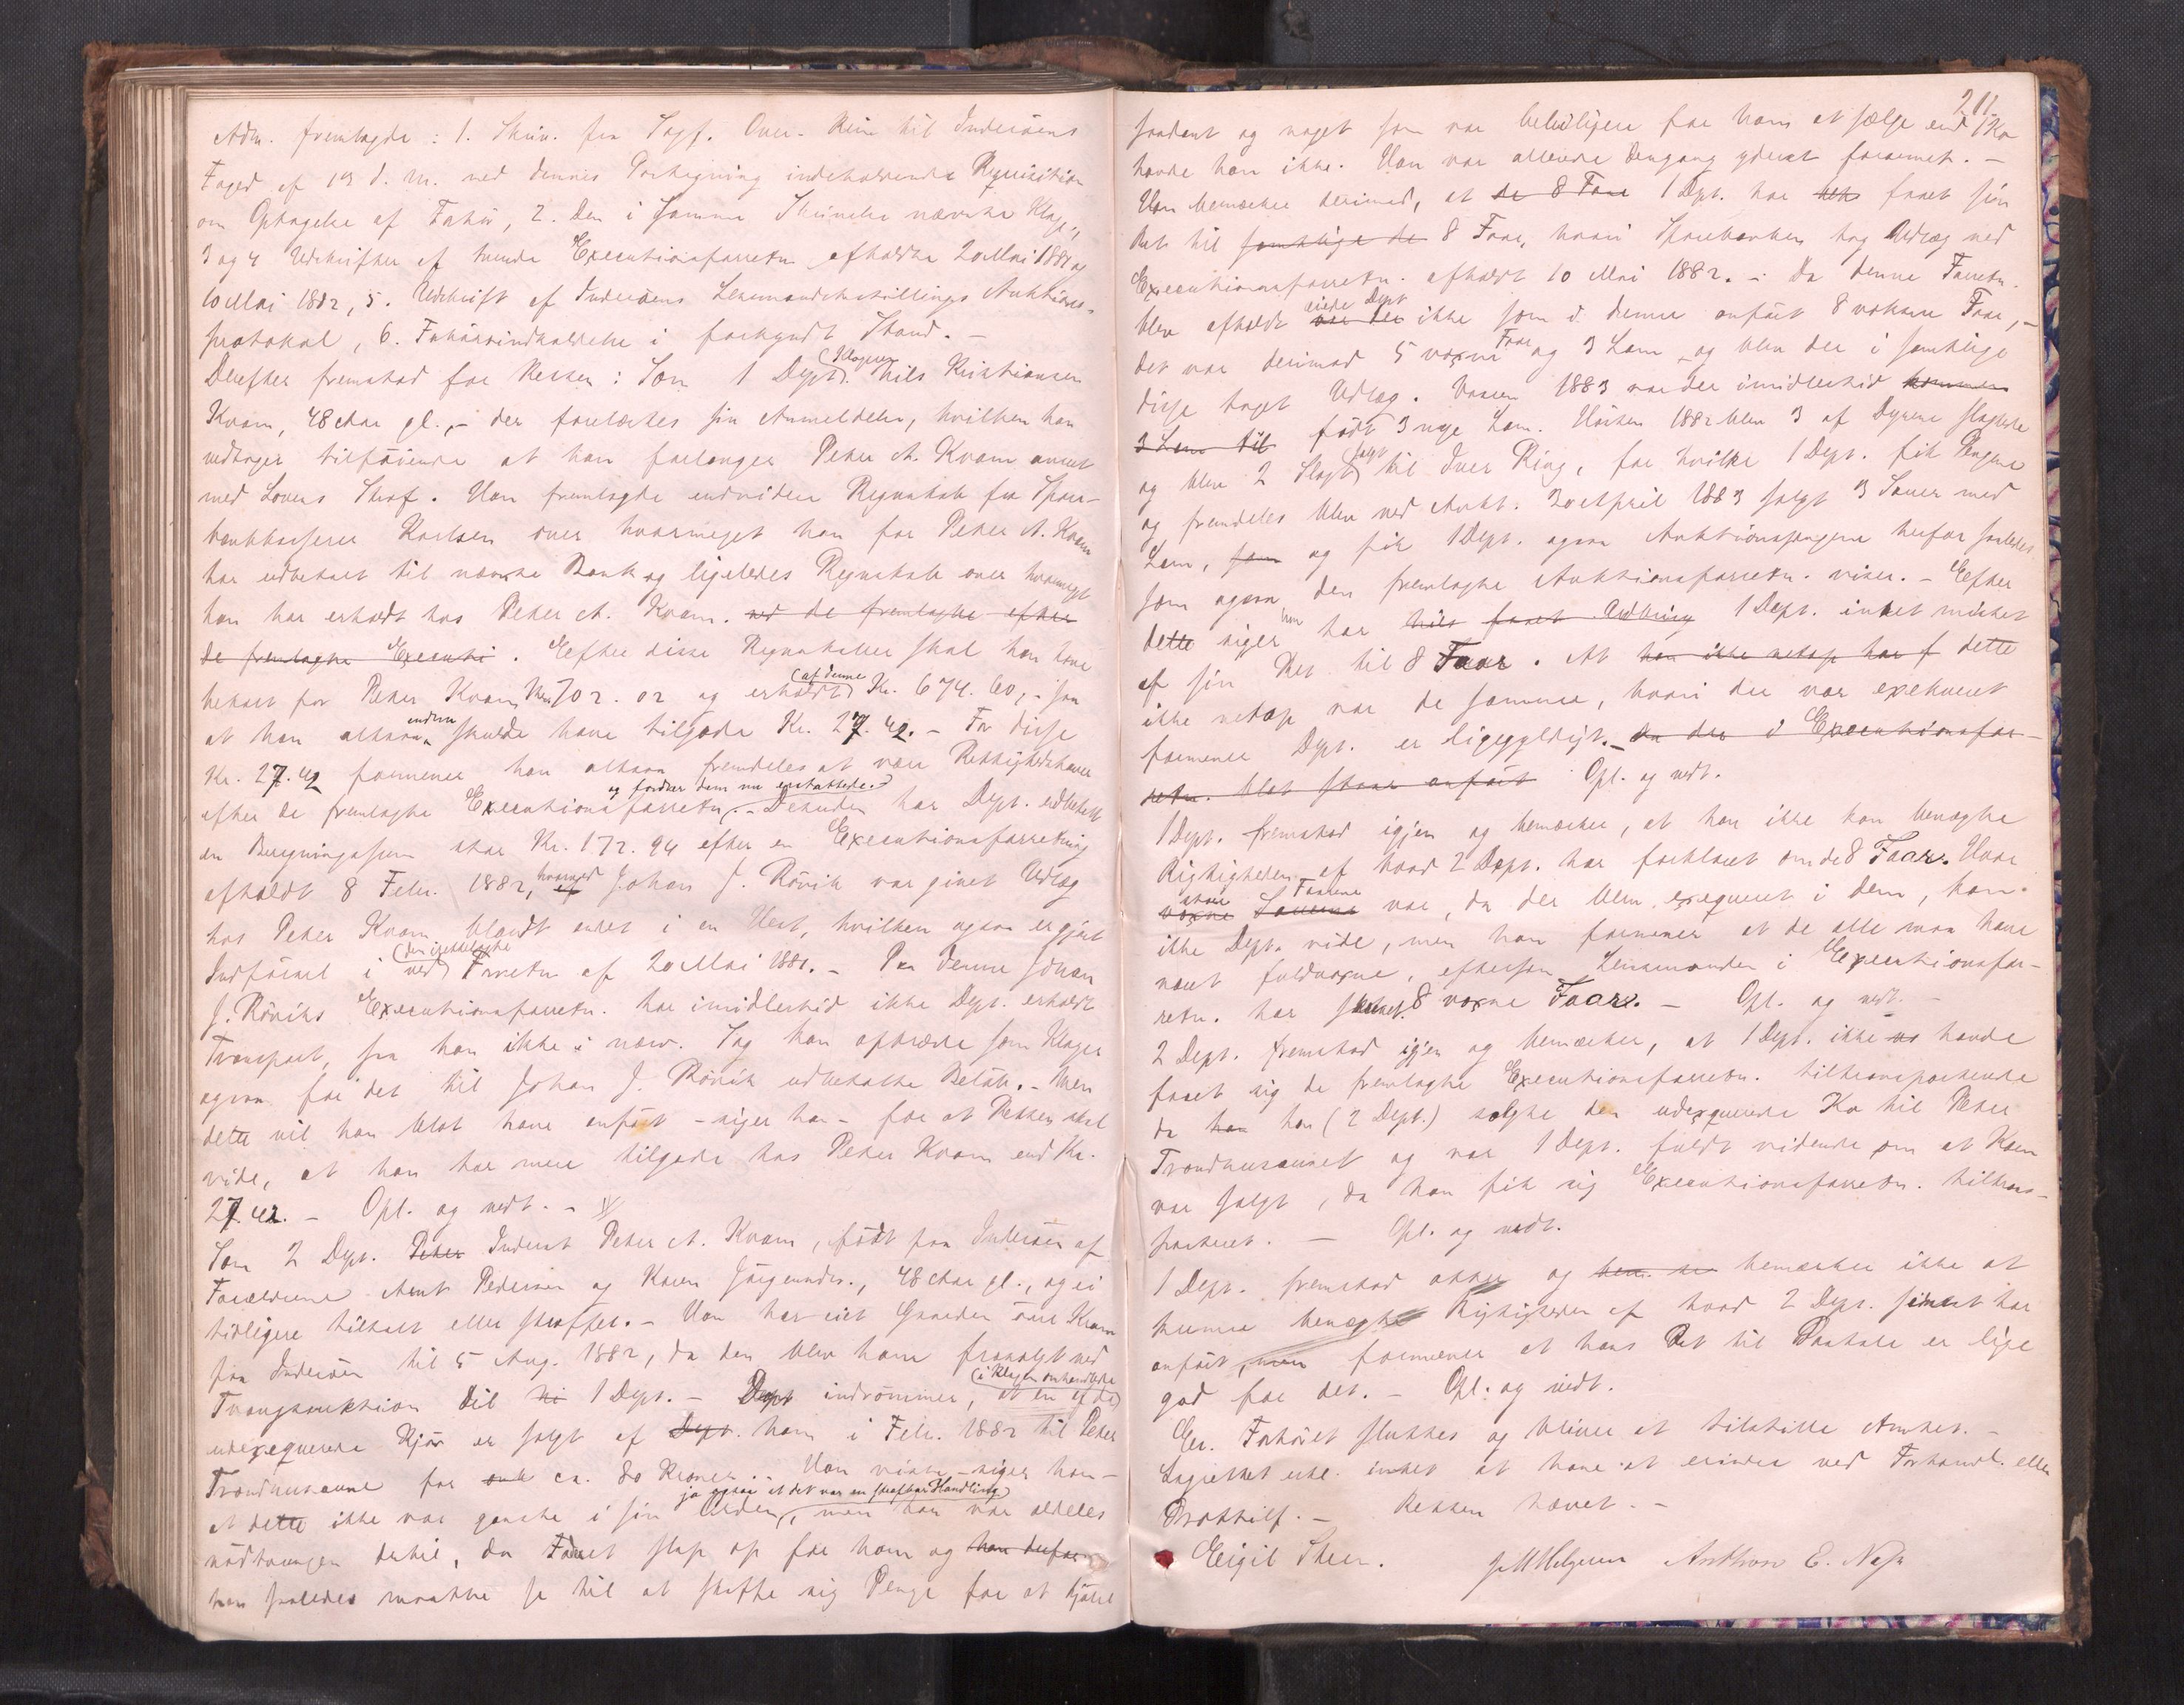 Adm. fremlagde: 1. Skriv. fra Sagf. Over-Rein til Inderöens
Foged af 19 d. M. med dennes Paategning indeholdende Requisition
om Optagelse af Forhör, 2. den i samme Skrivelse nævnte Klage,
3 og 4 Udskrifter af tvende Executionsforretn. afholdte 20 Mai 1881 og
10 Mai 1882, 5. Udskrift af Inderöens Lensmandsbestillings Auktions-
protokol, 6. Forhörsindkaldelse i forkyndt Stand. –
Derefter fremstod for Retten: Som 1 Dept. (Klageren) Nils Kristiansen
Kvam, 48 Aar gl., – der forelæstes sin Anmeldelse, hvilken han
vedtager tilföiende at han forlanger Peter A. Kvam anseet
med Lovens Straf. Han fremlagde endvidere Regnskab fra Spare-
bankkasserer Karlsen over hvormeget han for Peter A. Kvam
har udbetalt til nævnte Bank og ligeledes Regnskab over hvormeget
han har erholdt hos Peter A. Kvam. ved de fremlagte efter
de fremlagte Executi. Efter disse Regnskaber skal han have
betalt for Peter Kvam Kr. 702.02 og erholdt (af denne) Kr. 674.60, – saa
at han altsaa endnu skulde have tilgode Kr. 27.42. – For disse
Kr. 27.42 formener han altsaa fremdeles at være Rettighedshaver
efter de fremlagte Executionsforretn. og fordrer dem nu erstattede. – Desuden har Dept. udbetalt
en Bergningssum stor Kr. 172.94 efter en Executionsforretning
afholdt 8 Febr. 1882, hvorved af Johan J. Rövik var givet Udlæg
hos Peter Kvam blandt andet i en Hest, hvilken ogsaa er gjort
Indförsel i ved (den irettelagte) Forretn. af 20 Mai 1881. – Paa denne Johan
J. Röviks Executionsforretn. har imidlertid ikke Dept. erholdt
Transport, saa han ikke i nærv. Sag kan optræde som Klager
ogsaa for det til Johan J. Rövik udbetalte Belöb. – Men
dette vil han blot have anfört – siger han – for at Retten skal
vide, at han har mere tilgode hos Peter Kvam end Kr.
27.42. – Opl. og vedt. –
Som 2 Dept. Peter Inderst Peter A. Kvam, födt paa Inderöen af
Forældrene Arnt Pedersen og Karen Jörgensdr., 48 Aar gl., og ei
tidligere tiltalt eller straffet. – Han har eiet Gaarden övre Kvam
paa Inderöen til 5 Aug. 1882, da den blev ham frasolgt ved
Tvangsauktion til 1 Dept. – Dept indrömmer, at en af de (i Klagen omhandlede)
udexequerede Kjör er solgt af Dept. ham i Febr. 1882 til Peter
Trondhusaune for ca. 80 Kroner. – Han vidste – siger han –
at dette ikke var ganske i sin Orden, ja ogsaa at det var en strafbar Handling, men han var aldeles
nödtvungen dertil, da Foret slap op for ham og han derfor
han saaledes maatte se til at skaffe sig Penge for at kjöbe

211.
saadant og noget som var beleiligere for ham at sælge end 1 Ko
havde han ikke. Han var allerede dengang yderst forarmet. –
Han bemærker derimod, at de 8 Faar 1 Dept. har faaet sin
Ret til samtlige de 8 Faar, hvori Sparebanken tog Udlæg ved
Executionsforretn. afholdt 10 Mai 1882. – Da denne Forretn.
blev afholdt var der eiede Dept ikke som i denne anfört 8 voksne Faar, –
det var derimod 5 voxne Faar og 3 Lam – og blev der i samtlige
disse taget Udlæg. Vaaren 1883 var der imidlertid kommen
3 Lam til födt 3 nye Lam. Hösten 1882 blev 3 af Dyrene slagtede
og blev 2 Slagt solgt til Iver Ring, for hvilke 1 Dept. fik Pengene
og fremdeles blev ved Aukt. 30 April 1883 solgt 3 Sauer med
Lam, som og fik 1 Dept. ogsaa Auktionspengene herfor saaledes
som ogsaa den fremlagte Auktionsforretn. viser. – Efter
dette siger han har faaet Udbring 1 Dept. intet mistet
af sin Ret til 8 Faar. At han ikke netop har f dette
ikke netop var de samme, hvori der var exekveret
formener Dept. er ligegyldigt. – da der i Executionsfor-
retn. blot staar anfört Opl. og vedt.
1 Dept. fremstod igjen og bemærker, at han ikke kan benægte
Rigtigheden af hvad 2 Dept. har forklaret om de 8 Faar. Hvor
voxne Sauerne store Faarene var, da der blev exequeret i dem, kan
ikke Dept. vide, men han formener at de alle maa have
været fuldvoxne, eftersom Lensmanden i Executionsfor-
retn. har skrevet 8 voxne Faar. – Opl. og vedt. –
2 Dept. fremstod igjen og bemærker, at 1 Dept. ikke havde
faaet sig de fremlagte Executionsforretn. tiltransporterede
da han han (2 Dept.) solgte den udexequerede Ko til Peter
Trondhusaunet og var 1 Dept. fuldt vidende om at Koen
var solgt, da han fik sig Executionsforretn. tiltrans-
porteret. – Opl. og vedt.
1 Dept. fremstod atter og bemærker ikke at
kunne benægte Rigtigheden af hvad 2 Dept. sidst har
anfört, men formener at hans Ret til Paatale er lige
god for det. – Opl. og vedt.
Er. Forhöret sluttes og bliver at tilstille Amtet. –
Lagrettet erkl. intet at have at erindre ved Forhandl. eller
Prottilf. – Retten hævet. –
Eigil Steen. J. M. Helgesen Anthon E. Næss